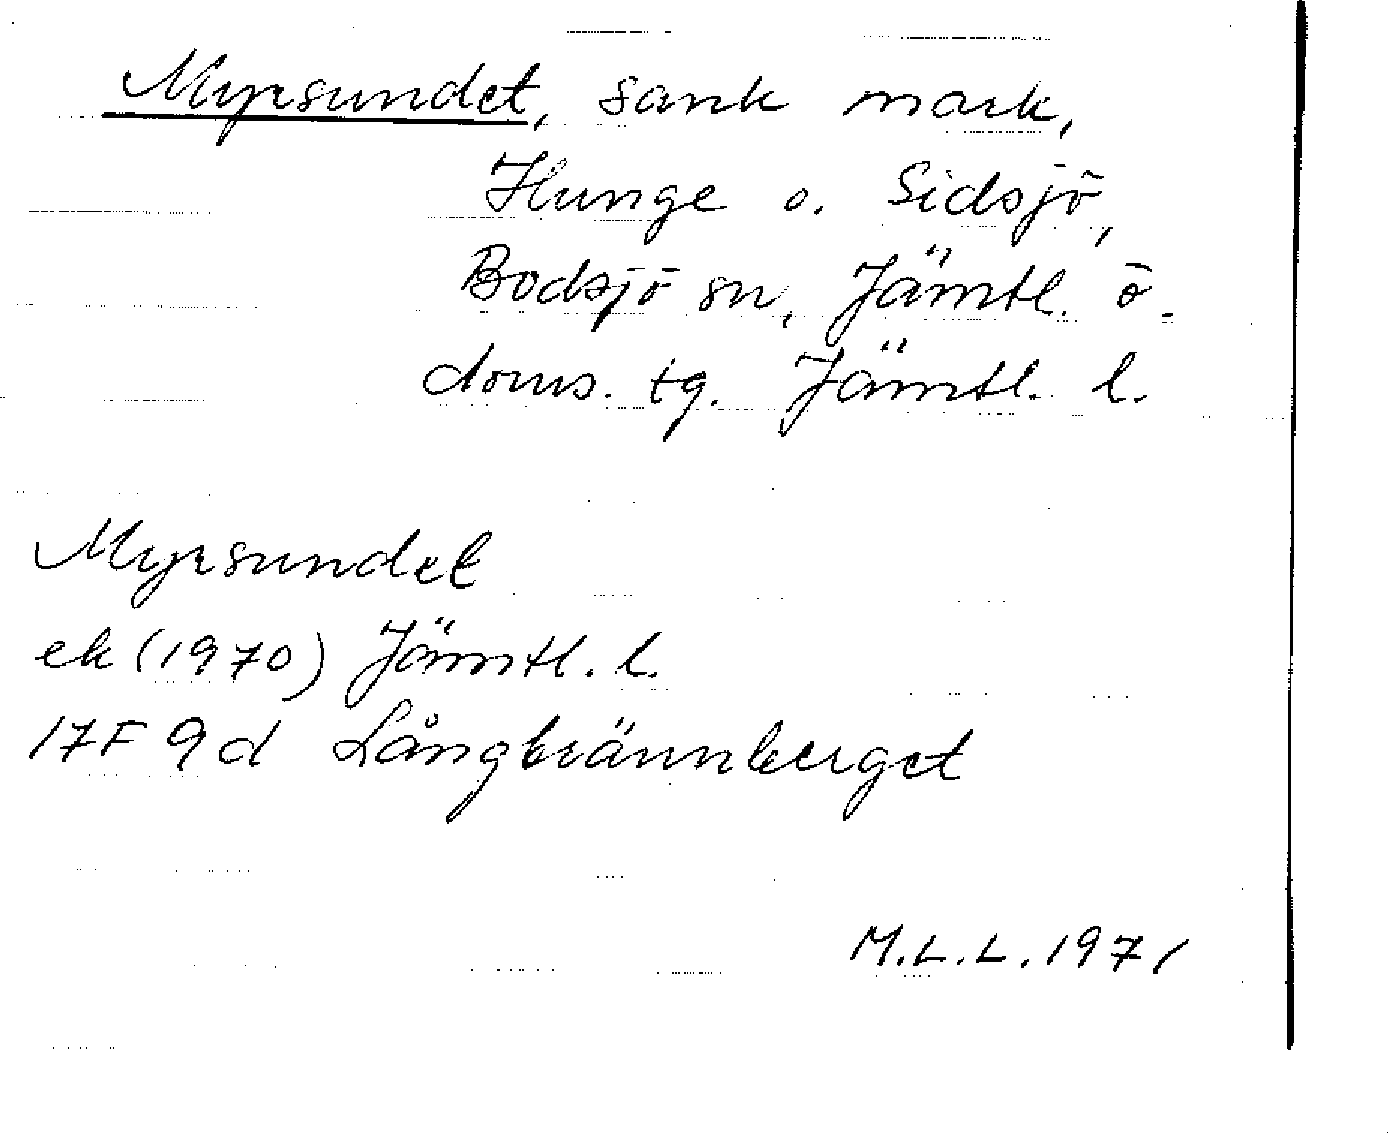 Myrsundet, sank mark,
Hunge o. Sidsjö,
Bodsjö sn, Jämtl. ö.
doms. tg. Jämtl. l.
Myrsundet
ek (1970) Jämtl. l.
17F 9d Långbrännberget
M.L.L. 1971